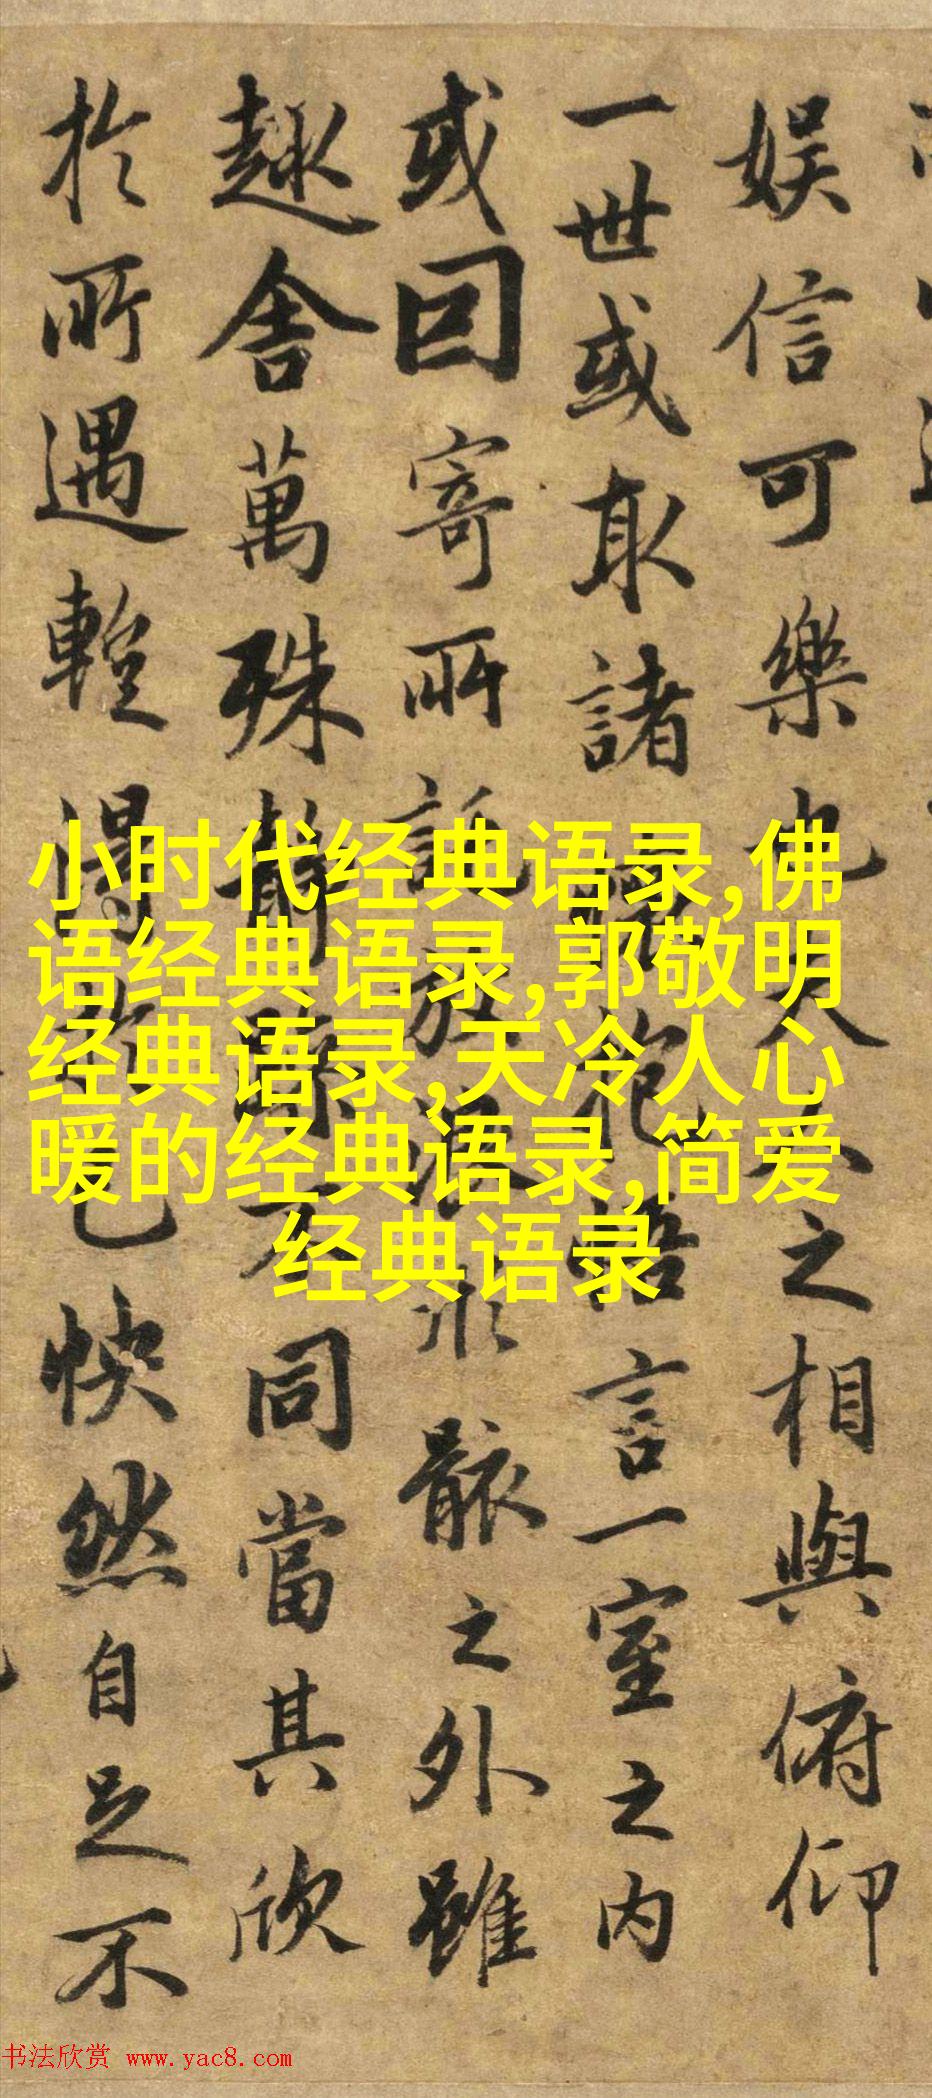 娱信可樂也夫人之相與俯仰
一世或取諸懷抱悟言一室之内
或因寄所託放浪形骸之外雖
趣舍萬殊静躁不同當其欣
於所遇蹔得於己快然自足不
小时代经典语录,佛
语经典语录,郭敬明
经典语录,天冷人心
暖的经典语录,简爱
经典语录
书法欣赏 www.yac8.com